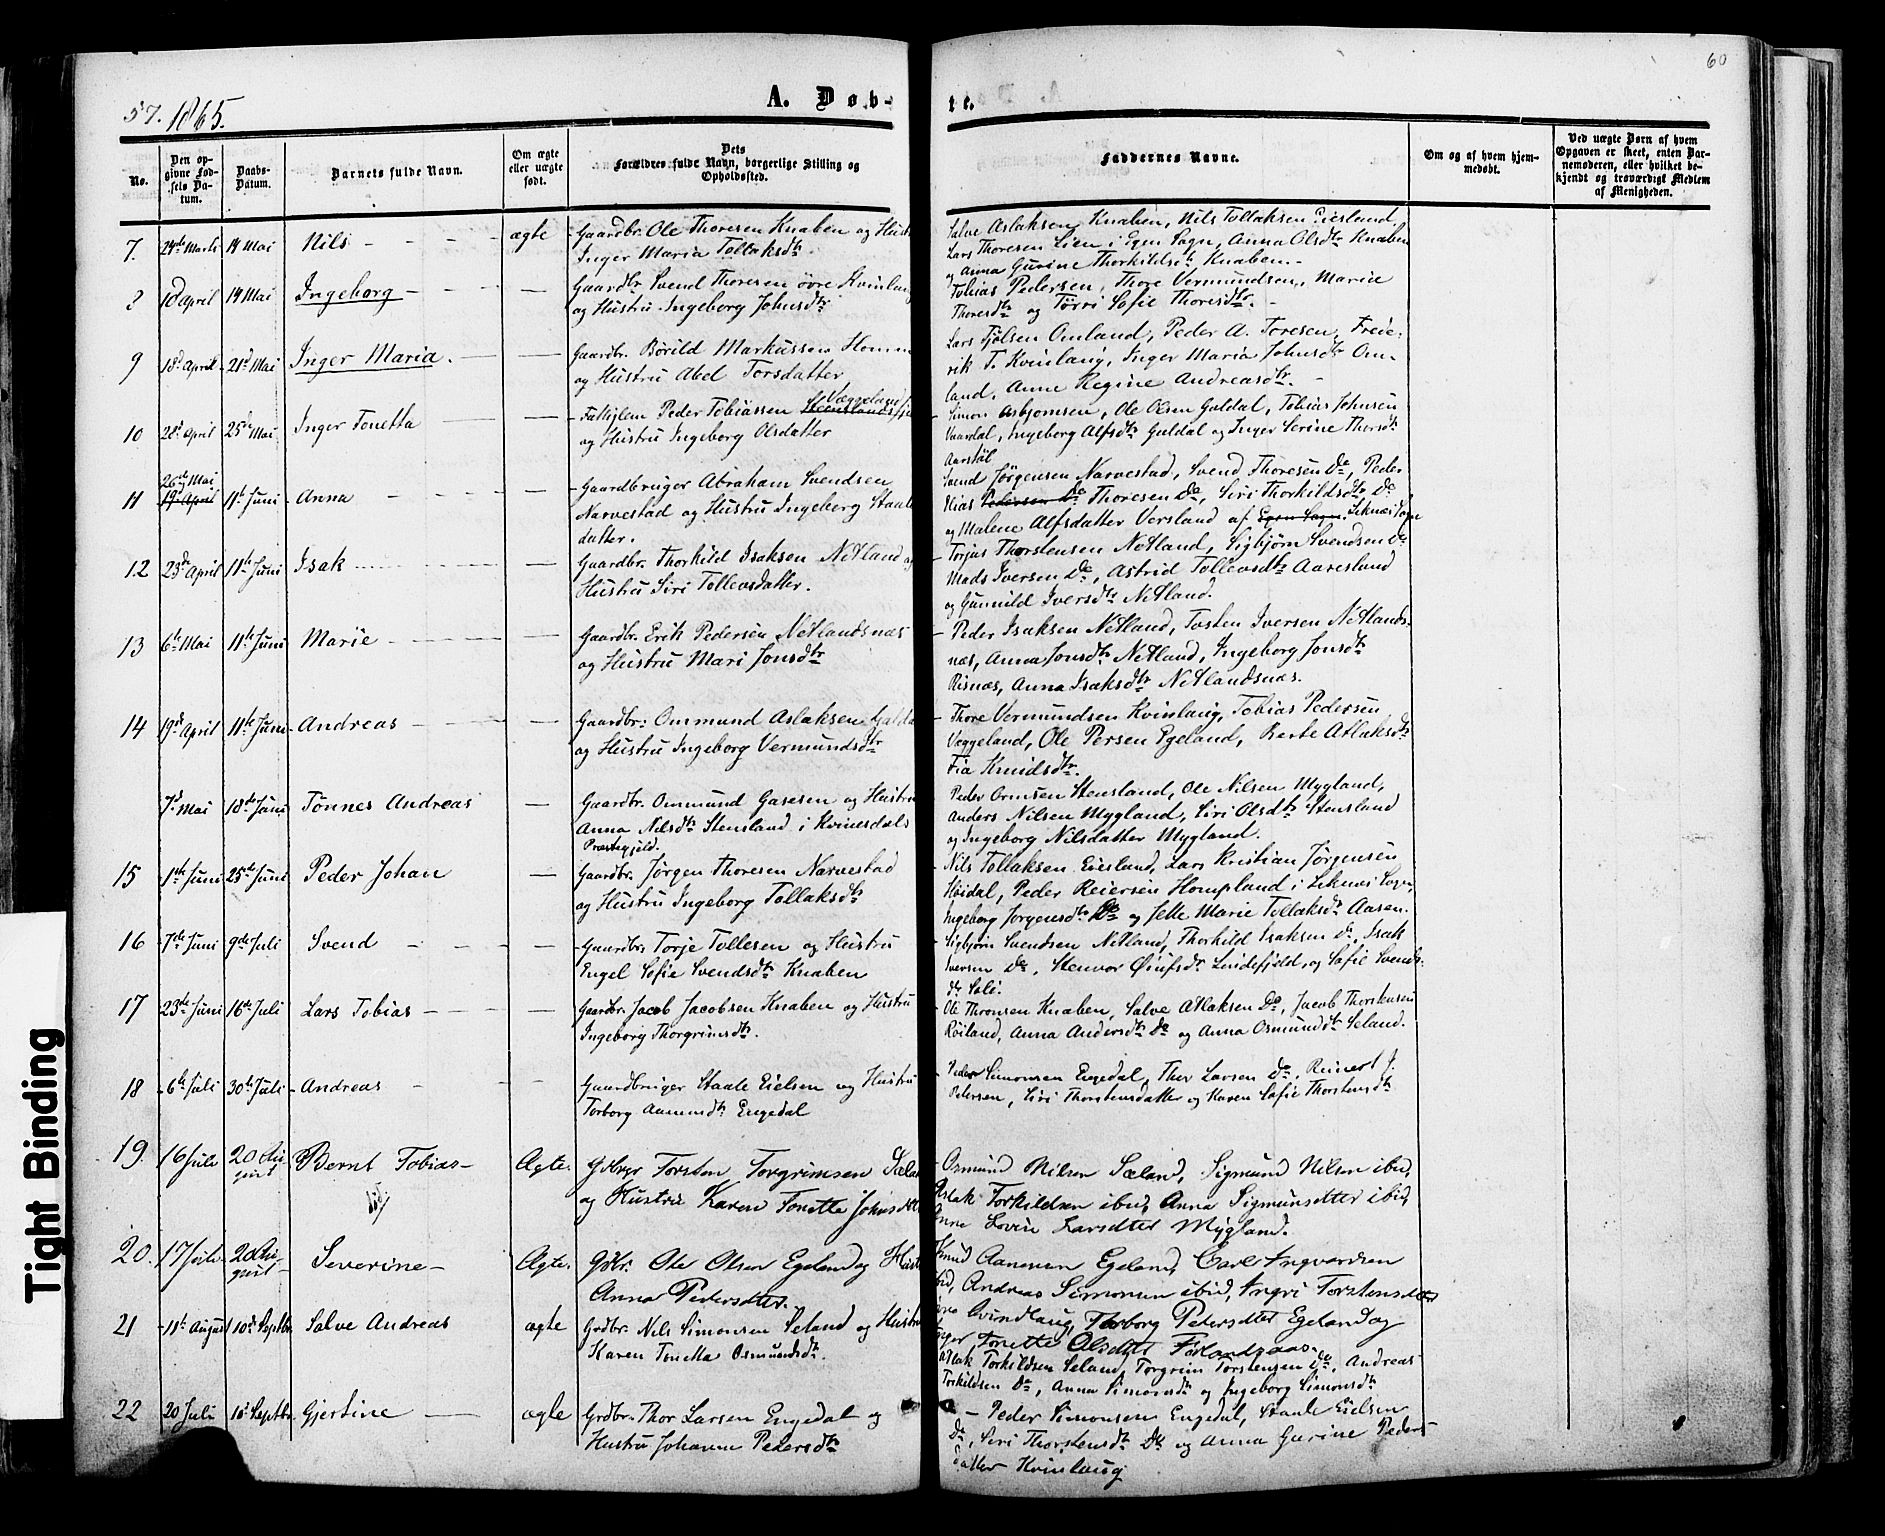 57. 1865.
A. Døb-
te.
60
No.
Den op-
givne Fød-
sels Da-
tum.
Daabs-
Datum.
Barnets fulde Navn.
Om ægte
eller uægte
født.
Dets
Forældres fulde Navn, borgerlige Stilling og
Opholdssted.
Faddernes Navne.
Om og af hvem hjem-
medøbt.
Ved uægte Børn af hvem
Opgaven er skeet, enten Bar-
nemoderen, eller hvilket be-
kjendt og troværdigt Medlem
af Menigheden.
7. 24de Marts 14 Mai Nils - ægte
Gaardbr. Ole Thoresen Knaben og Hust
Inger Maria Tollaksdtr
Salve Aslaksen Knaben, Nils Tollaksen Eiesland,
Lars Thoresen Lien i Egen Sogn, Anna Olsdtr Knaben
og Anna Gurine Thorkildsdtr Knaben.
8 10d april 14 Mai Ingeborg -
Gaardbr Svend Thoresen øvre Kvinlaug
og Hustru Ingeborg Johnsdtr
Tobias Pedersen, Thore Vermundsen, Maria
Thoresdtr og Tørri Sofie Thoresdtr.
9 18d April 21d Mai Inger Maria.
Gaardbr. Børild Markussen Homme
og Hustru Abel Torsdatter
Lars Tjølsen Omland, Peder A. Toresen, Frede-
rik T. Kvinlaug, Inger Maria Johnsdtr Om-
land, Anne Regine Andreasdtr.
10 28d April 25d Mai Inger Tonetta
Fattiglem Peder Tobiassen Stenslandsfj Væggeland
og Hustru Ingeborg Olsdatter
Simon Asbjørnsen, Ole Olsen Guldal, Tobias Johnsen
Vaardal, Ingeborg Alfsdtr Guldal og Inger Serine Thorsdtr
Aarstøl
26de Mai
11 19d April 11te Juni Anna
Gaardbruger Abraham Svendsen
Narvestad og Hustru Ingeborg Staale
datter.
Svend Jørgensen Narvestad, Svend Thoresen Do, Peder
Elias Pedersen Do Thoresen Do, Siri Thorkildsdtr Do
og Malene Alfsdatter Versland af Egen Sogn. Leknæs Sogn
12 23de April 11te Juni Isak
Gaardbr. Thorkild Isaksen Netland og
Hustru Siri Tollevsdatter.
Torjus Thorstensen Netland, Sigbjørn Svendsen Do
Mads Iversen Do, Astrid Tollevsdtr Aaresland
og Gunnild Iversdtr Netland.
13 6te Mai 11te Juni Marie
Gaardbr. Erik Pedersen Netlandsnæs
og Hustru Mari Jonsdtr
Peder Isaksen Netland, Tosten Iversen Netlands-
næs, Anna Jonsdtr Netland, Ingeborg Jonsdtr
Risnæs, Anna Isaksdtr Netlandsnæs.
14 19d April 11te Juni Andreas
Gaardbr: Ommund Aslaksen Galda
og Hustru Ingeborg Vermundsdtr
Thore Vermundsen Kvinlaug, Tobias Pedersen
Væggeland, Ole Persen Egeland, Berte Atlaksdtr
Fia Knudsdtr.
7d Mai 18de Juni Tønnes Andreas
Gaardbr. Ommund Gasesen og Hustru
Anna Nilsdtr Stensland i Kvinesdals
Præstegjeld.
Peder Ormsen Stensland, Ole Nilsen Mygland,
Anders Nilsen Mygland, Siri Olsdtr Stensland
og Ingeborg Nilsdatter Mygland.
15 1te Juni 25de Juni Peder Johan
Gaardbr. Jørgen Thoresen Narvestad
og Hustru Ingeborg Tollaksdtr
Nils Tollaksen Eiesland, Lars Kristian Jørgensen
Peder Reiersen Hompland i Leknæs Sogn,
Ingeborg Jørgensdtr Do og Jette Marie Tollaksdtr Aasen.
16 7de Juni 9de Juli Svend
Gaardbr: Torje Tollesen og Hustru
Engel Sofie Svendsdtr Knaben
Sigbjørn Svendsen Netland, Thorkild Isaksen Do, Isak
Iversen Do, Stenvor Øiufsdtr Lindefjeld, og Sofie Svends-
dtr Soli.
17 23de Juni 16de Juli Lars Tobias
Gaardbr: Jacob Jacobsen Knaben og Hustru
Ingeborg Thorgrimsdtr.
Ole Thronsen Knaben, Salve Atlaksen Do, Jacob Thorkensen
Røiland, Anna Andersdtr Do og Anna Osmundsdtr Seland.
18 6te Juli 30te Juli Andreas
Gaardbruger Staale Eielsen og Hustru
Torborg Aamundsdtr Engedal
Peder Simonsen Engedal, Thor Larsen Do, Reinert
Petersen, Siri Thorstensdatter og Karen Sofie Thorstensdtr
19. 16 Juli 20 Au-
gust Bernt Tobias Ægte.
Gdbrgr Torsten Torgrimsen Sælan
og Hustru Karen Tonette Johnsdtt
Osmund Nilsen Sæland, Sigmund Nilsen ibid,
Aslak Torkildsen ibid, Anna Sigmunsdtter ibid,
Anne Lovise Larsdtter Mygland.
20. 17 Juli 20 Au-
gust Severine Ægte.
Gdbr: Ole Olsen Egeland og Hust
Anna Pedersdtter.
Knud Aanensen Egeland, Carl Ingvardsen
ibid, Andreas Simonsen ibid, Ingri Torstensdtter
Kvindlaug, Torborg Pedersdtter Egeland og
Inger Tonette Olsdtter Førlandsaas.
21 11te August 10d Septbr Salve Andreas ægte
Grdbr. Nils Simonsen Seland og Hustru
Karen Tonetta Osmundsdtr.
Aslak Torkildsen Seland, Torgrim Torstensen Do, Andreas
Torkildsen Do, Anna Simonsdtr og Ingeborg Simonsdtr
22 20 Juli 10d Septbr Gjertine ægte
Grdbr. Thor Larsen Engedal og
Hustru Johanne Pedersdtr
Peder Simonsen Engedal, Staale Eielsen
Do, Siri Thorstensdtr Do og Anna Gurine Peders-
datter Kvinlaug
Tight Binding